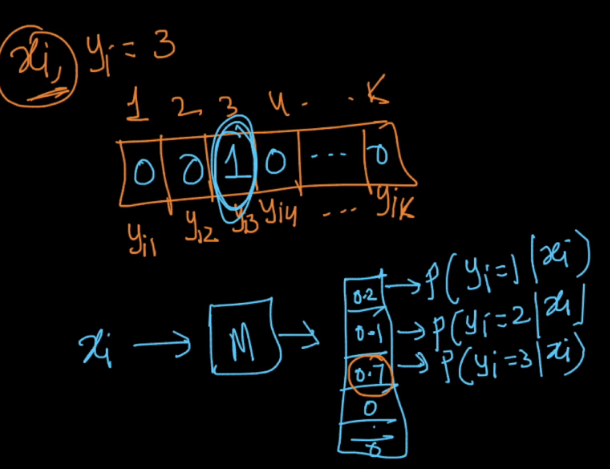 xi, yi = 3
1 2 3 4 . . . K
0 0 1 0 ... 0
yi1 yi2 yi3 yi4 ... yiK
xi → M →
0.2 → P(yi=1|xi)
0.1 → P(yi=2|xi)
0.7 → P(yi=3|xi)
0
:
0